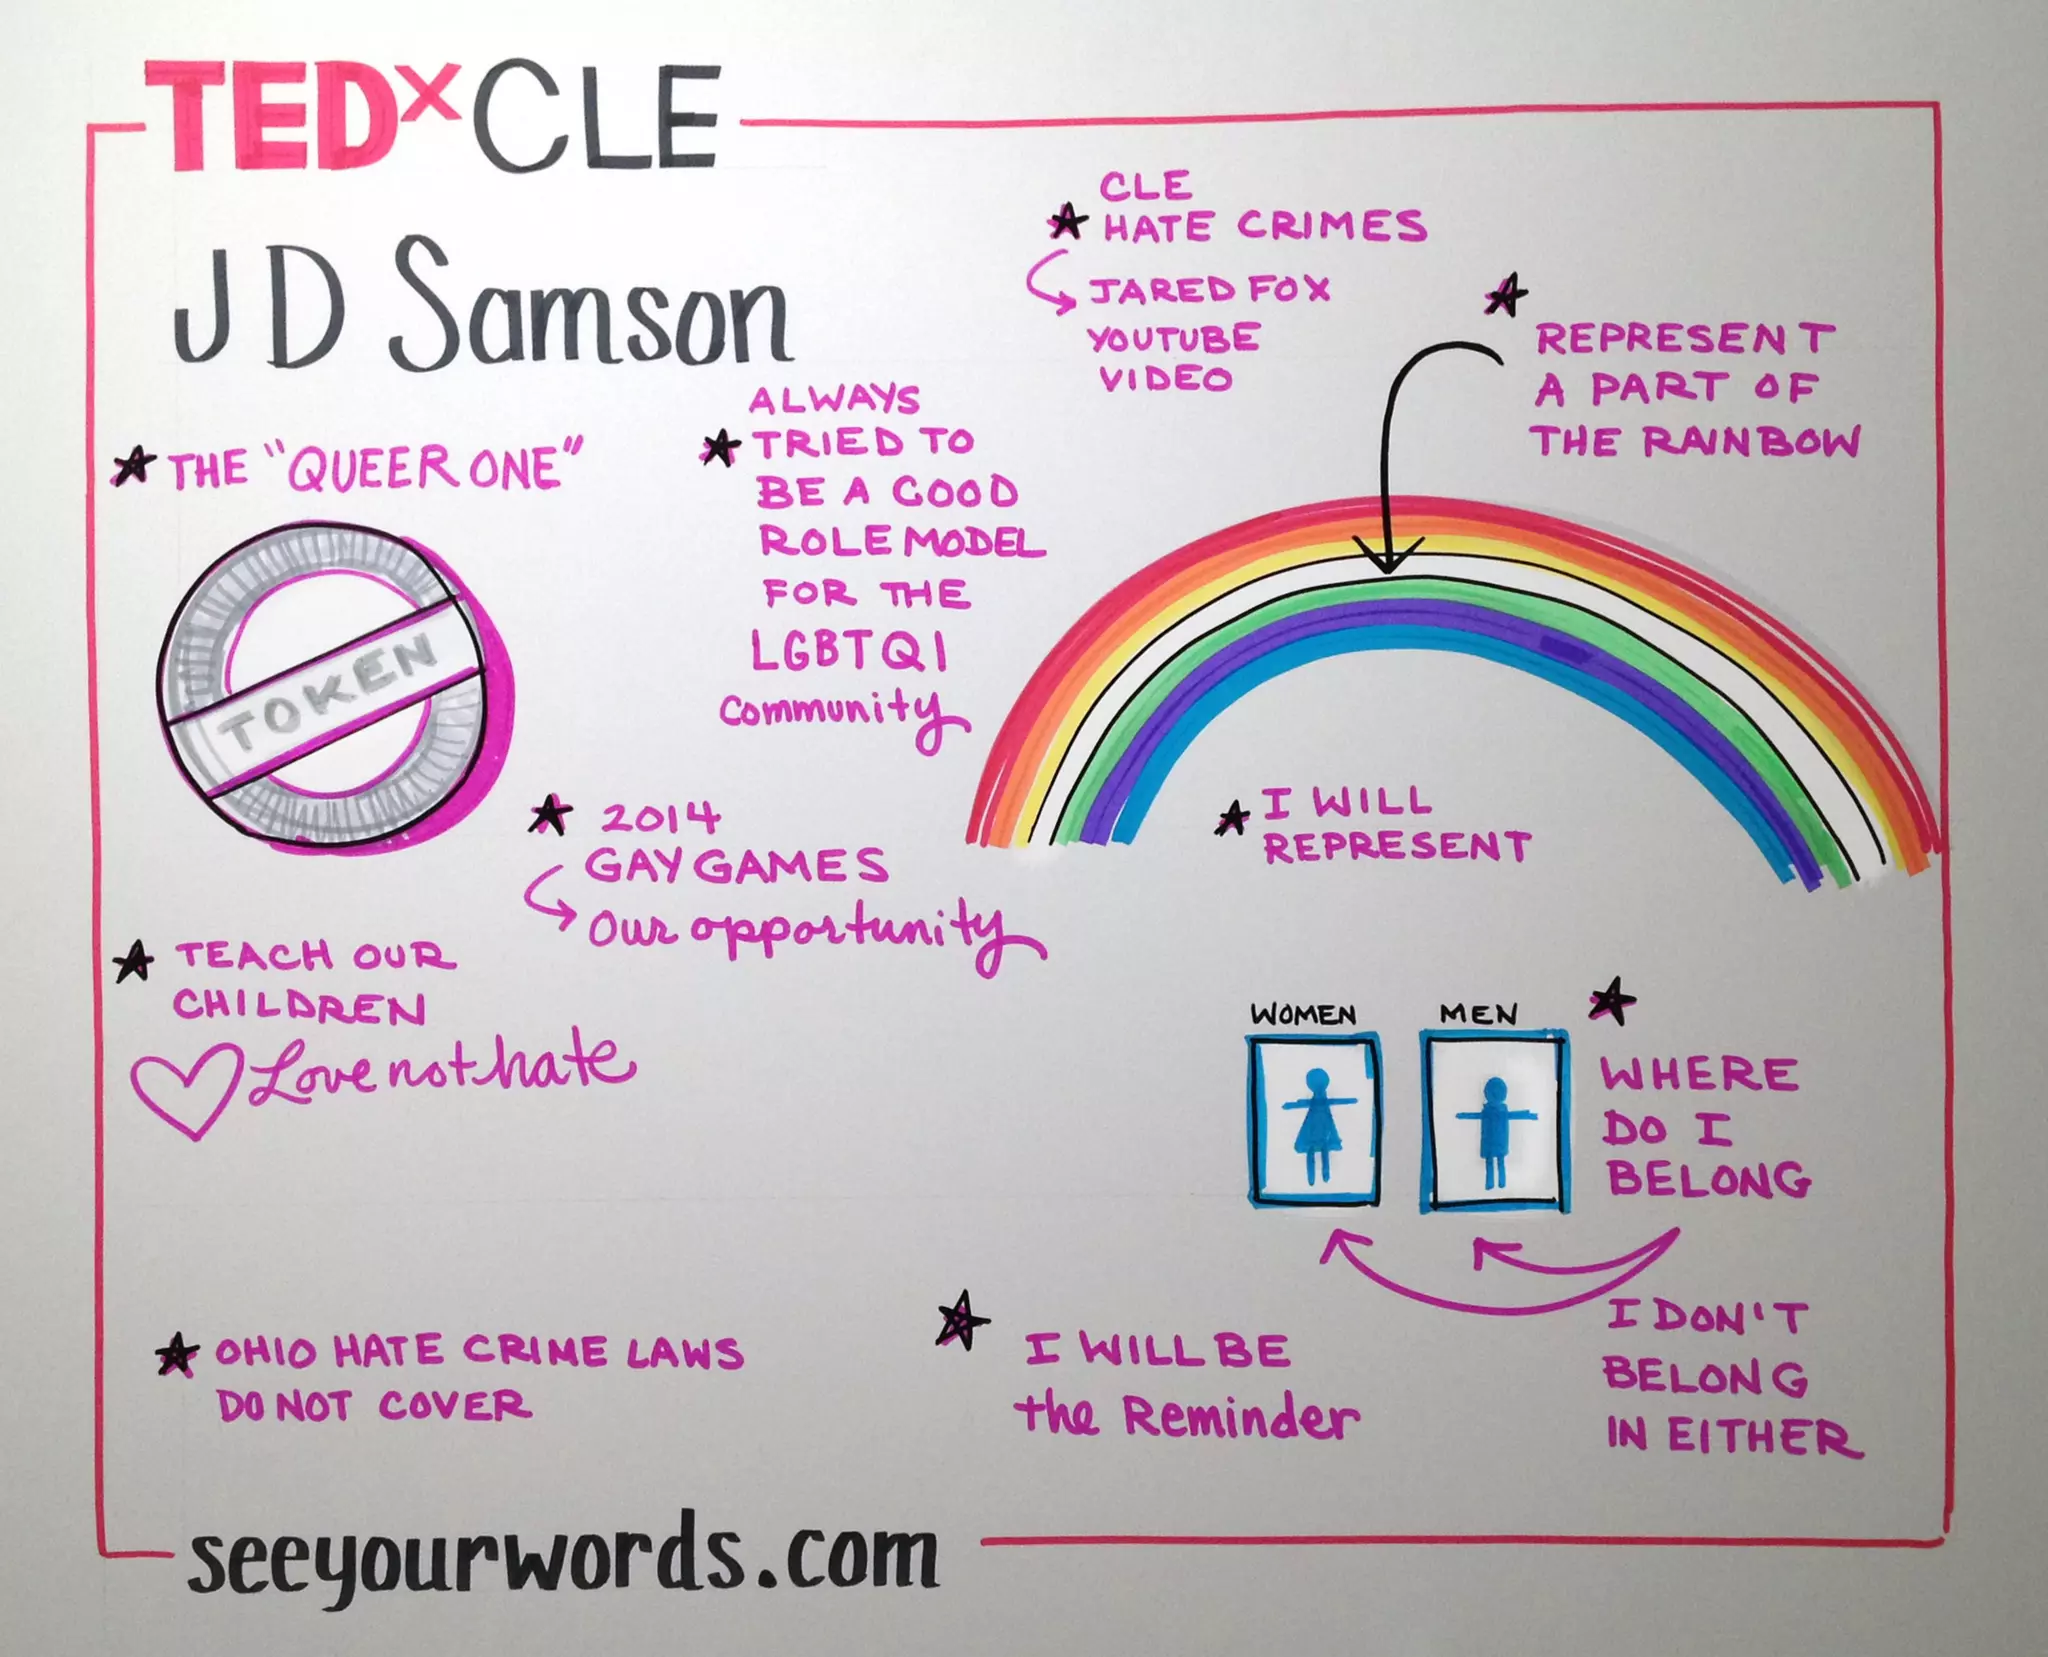 TEDxCLE
JD Samson
THE "QUEER ONE"
TOKEN
ALWAYS
TRIED TO
BE A GOOD
ROLE MODEL
FOR THE
LGBTQI
Community
CLE
HATE CRIMES
JARED FOX
YOUTUBE
VIDEO
REPRESENT
A PART OF
THE RAINBOW
I WILL
REPRESENT
2014
GAY GAMES
Our opportunity
TEACH OUR
CHILDREN
Love not hate
WOMEN
MEN
WHERE
DO I
BELONG
I DON'T
BELONG
IN EITHER
OHIO HATE CRIME LAWS
DO NOT COVER
I WILL BE
the Reminder
seeyourwords.com